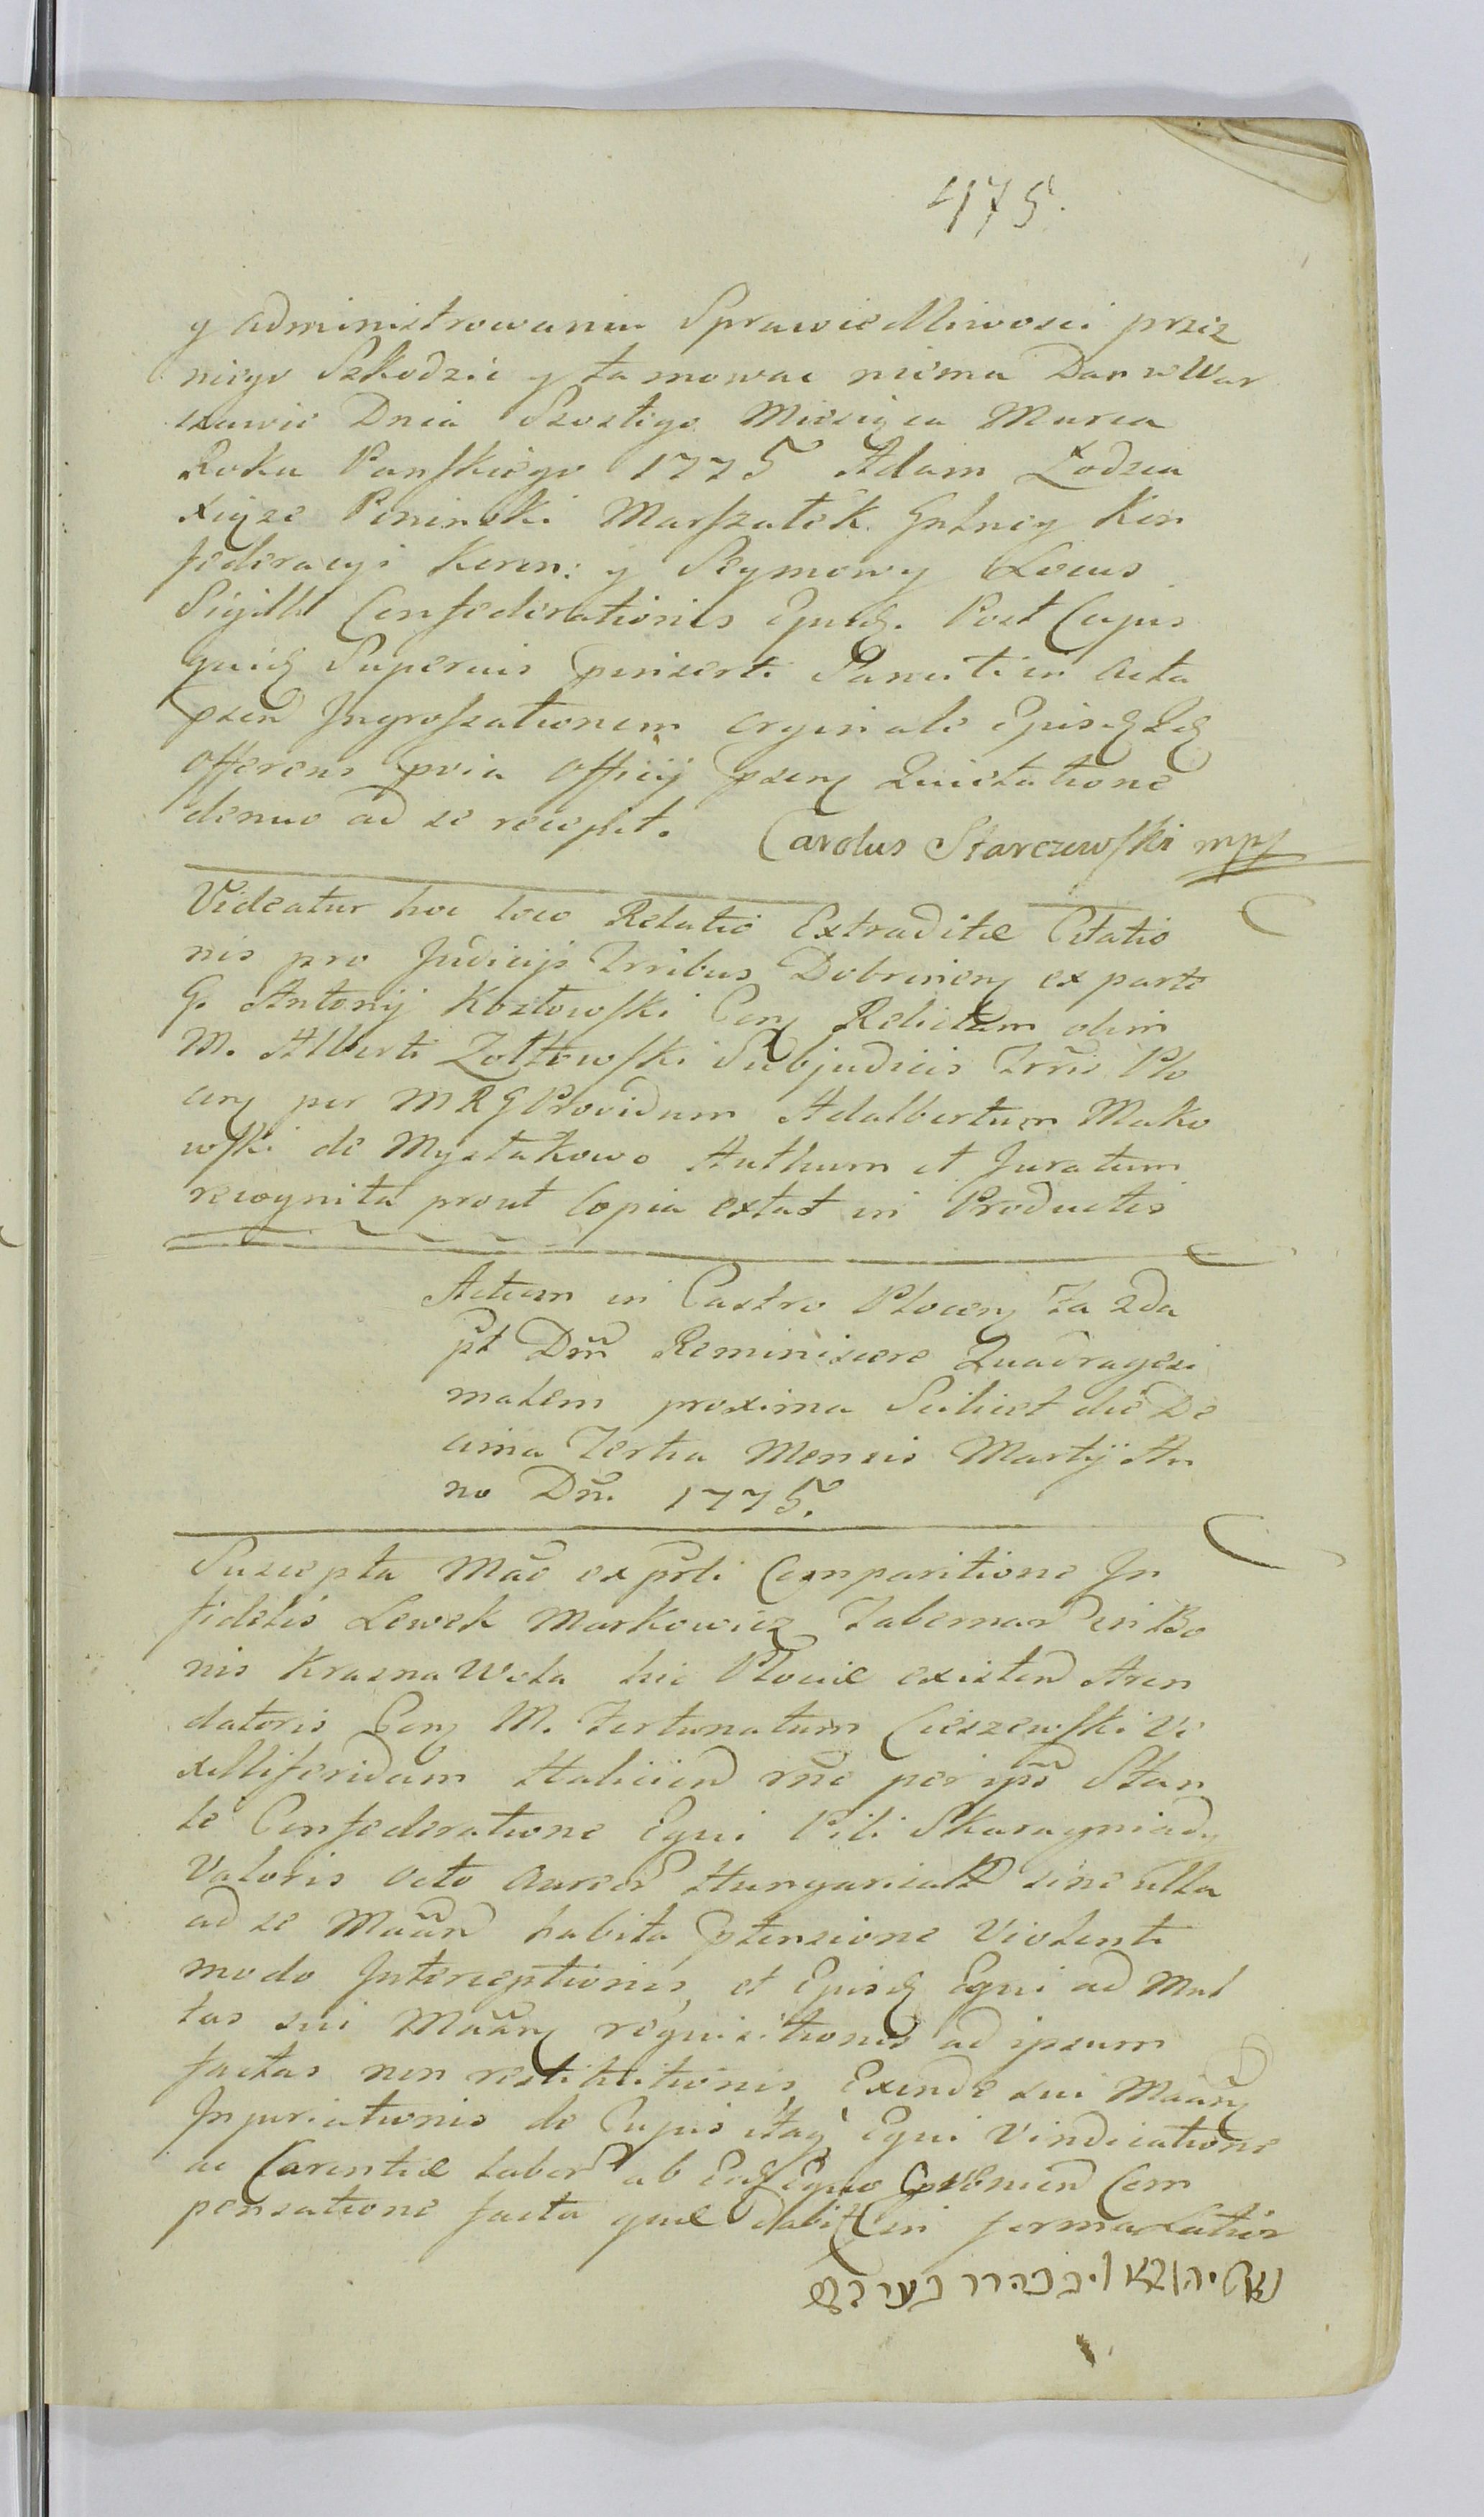 475.
y administrowaniu Sprawiedliwosci przez
niego Szkodzić y tamować niema Dan w War
szawie Dnia Szostego Miesiąca Marca
Roku Panſkiego 1775 Adam Łodzia
Xiąze Poninski Marſzałek Gnlney Kon
federacyi Koron: y Seymowy Locus
Sigilli Confederationis Ejusd. Post Cujus
quid Superius pinserti Sanciti in Acta
pzen Ingroſsationem originale Ejusd Id
Offerens pria Officÿ pzen Quietatione
denuo ad se recepit. Carolus Starczewſki mpp
Videatur hoc loco Relatio Extraditæ Citatio
nis pro Judicijs Trribus Dobrinen ex parte
G. Antonij Kozłowſki Con Relictum olim
M. Alberti Zołtowſki Subjudicis Trris Plo
cen per MRG Providum Adalbertum Mako
wſki de Myſtakowo Authum et Juratum
recognita prout Copia extat in Productis
Actum in Castro Plocen Fa 2da
pt Dm̃ Reminiscere Quadragesi
malem proxima Scilicet die De
cima Tertia Mensis Martÿ An
no Dñi 1775.
Suscepta Mãe ex prli Comparitione In
fidelis Lewek Markowicz Tabernar in Bo
nis Krasna Wola hic Plociæ existen Aren
datoris Con M. Fortunatum Cieszewſki Ve
xilliferidam Halicien rñe per ips Stan
te Confederatione Equi Pili Skarogniady
Valoris Octo Aureor Hungarical sine ulla
ad se Mãan habita ptensione Violenti
modo Interceptionis, et Ejusd Equi ad Mul
tas sui Mãan requisitiones ad ipsum
factas non restitutionis Exinde sui Mãan
Injuriationis de Cujus itaq Equi Vindicatione
ac Carentiæ labor ab Eod Equo Com
pensatione facta quæ dabit in forma Latior